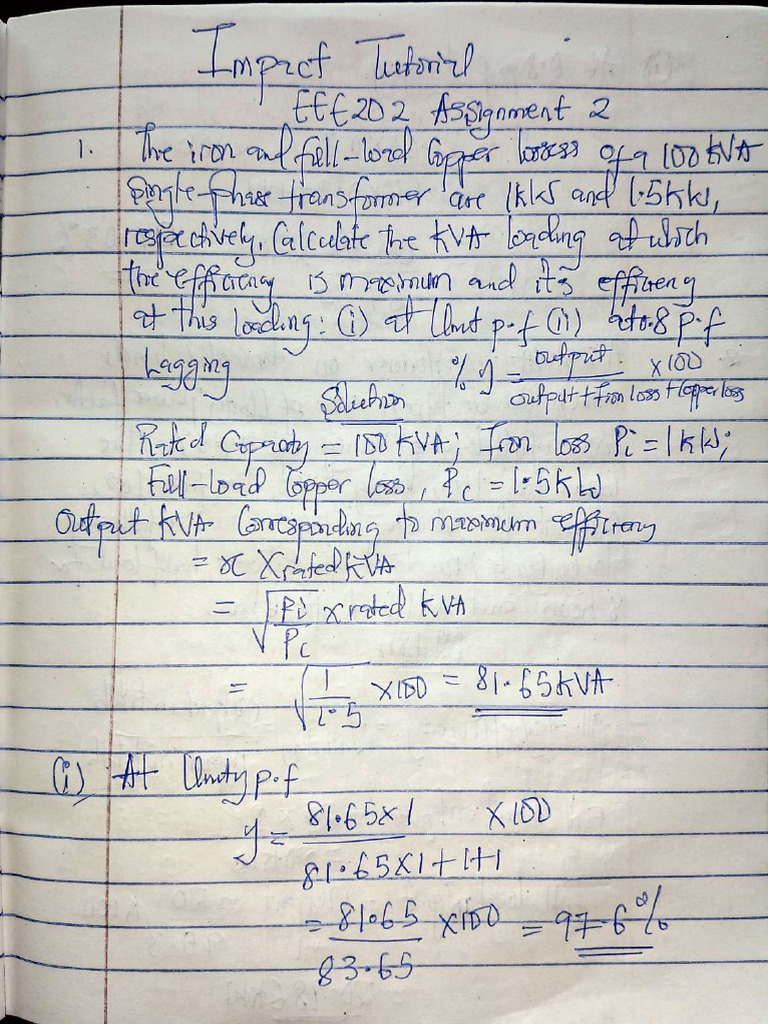 Impact Tutorial
EEE202 Assignment 2
1. The iron and full-load Copper losses of a 100 KVA
Single-phase transformer are 1kW and 1.5kW,
respectively. Calculate the KVA loading at which
the efficiency is maximum and its efficiency
at this loading: (i) at Unit p.f (ii) at 0.8 p.f
Lagging
% η = output / output + Iron loss + Copper loss × 100
Solution
Rated Capacity = 100 KVA; Iron loss Pi = 1kW;
Full-load Copper loss, Pc = 1.5kW
Output KVA Corresponding to maximum efficiency
= x X rated KVA
= √Pi/Pc × rated KVA
= √1/1.5 × 100 = 81.65KVA
(i) At Unity p.f
η = 81.65×1 / 81.65×1+1+1 × 100
= 81.65 / 83.65 × 100 = 97.6%